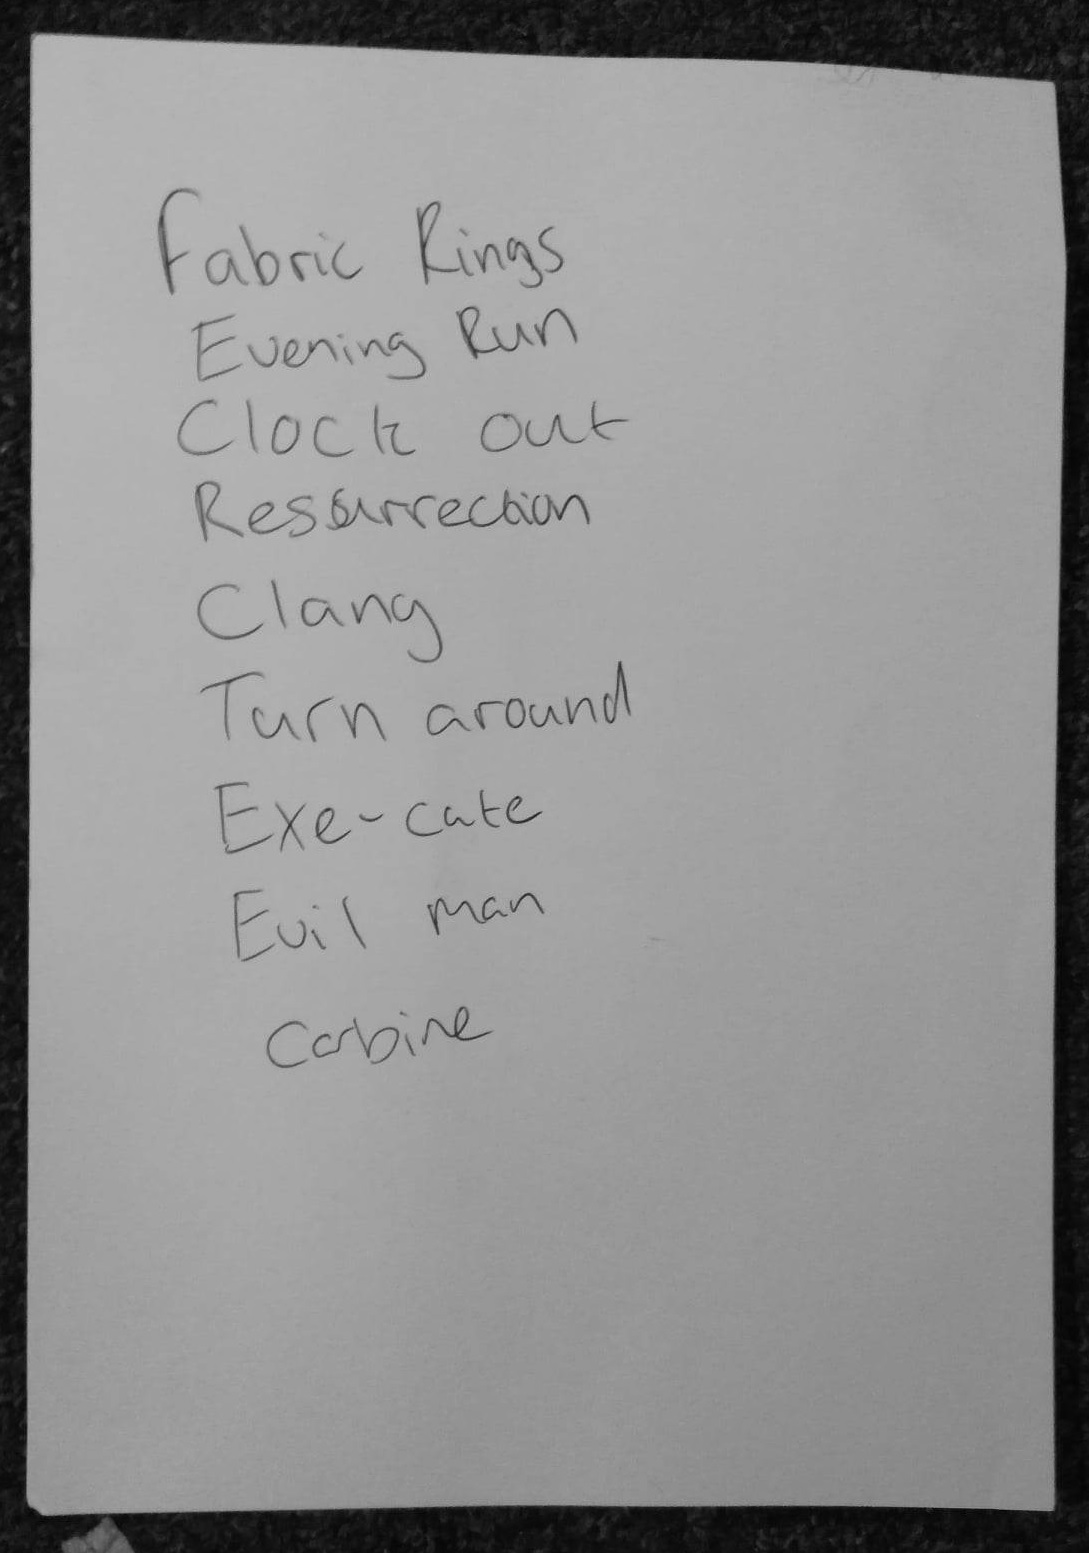 Fabric Rings
Evening Run
Clock out
Ressurrection
Clang
Turn around
Exe-cute
Evil man
Carbine